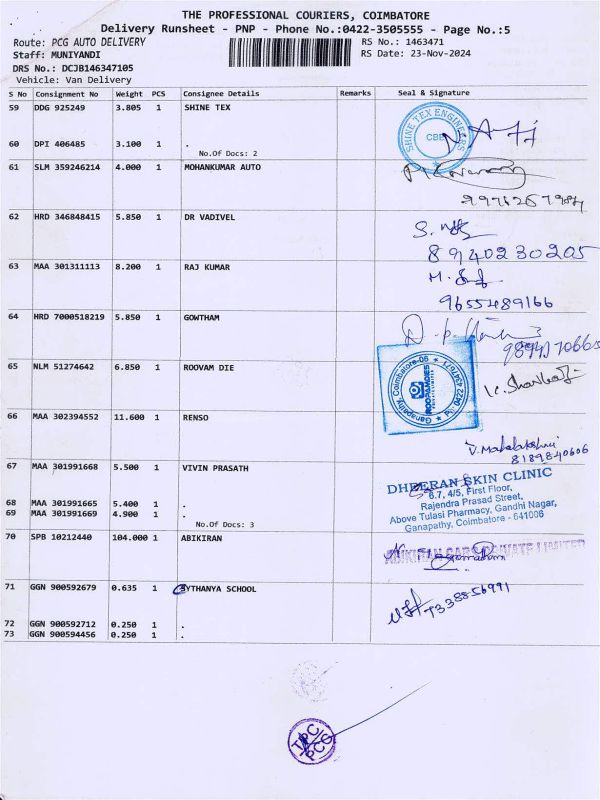 THE PROFESSIONAL COURIERS, COIMBATORE
Delivery Runsheet - PNP - Phone No.:0422-3505555 - Page No.:5
Route: PCG AUTO DELIVERY
RS No.: 1463471
Staff: MUNIYANDI
RS Date: 23-Nov-2024
DRS No.: DCJB146347105
Vehicle: Van Delivery
S No Consignment No Weight PCS Consignee Details Remarks Seal & Signature
59 DDG 925249 3.805 1 SHINE TEX
SHINE TEX ENGINEERS
CBE
60 DPI 406485 3.100 1 .
No.Of Docs: 2
61 SLM 359246214 4.000 1 MOHANKUMAR AUTO
62 HRD 346848415 5.850 1 DR VADIVEL
8940230205
63 MAA 301311113 8.200 1 RAJ KUMAR
9655489166
64 HRD 7000518219 5.850 1 GOWTHAM
65 NLM 51274642 6.850 1 ROOVAM DIE
Ganapathy, Coimbatore-06
66 MAA 302394552 11.600 1 RENSO
V. Mahalakshmi
8189840606
67 MAA 301991668 5.500 1 VIVIN PRASATH
DHEERAN SKIN CLINIC
6,7, 4/5, First Floor,
Rajendra Prasad Street,
Above Tulasi Pharmacy, Gandhi Nagar,
Ganapathy, Coimbatore - 641006
68 MAA 301991665 5.400 1 .
69 MAA 301991669 4.900 1 .
No.Of Docs: 3
70 SPB 10212440 104.000 1 ABIKIRAN
71 GGN 900592679 0.635 1 YTHANYA SCHOOL
72 GGN 900592712 0.250 1 .
73 GGN 900594456 0.250 1 .
TPC
PCG